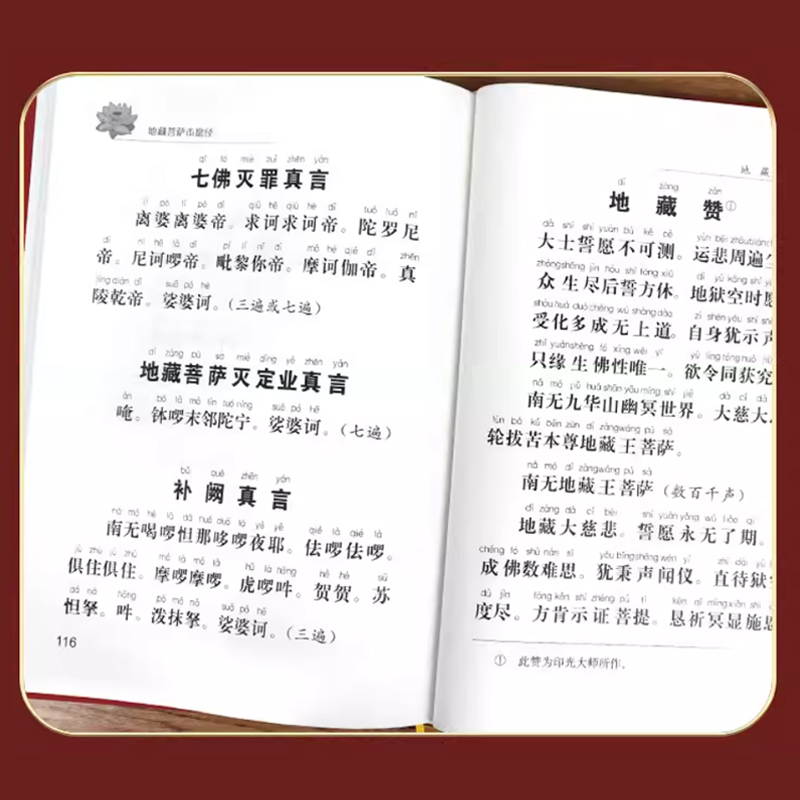 地藏菩萨本愿经
qī fó miè zuì zhēn yán
七佛灭罪真言
lí pó lí pó dì qiú hē qiú hē dì tuó luó ní
离婆离婆帝。求诃求诃帝。陀罗尼
dì ní hē lā dì pí lí nǐ dì mó hē qié dì zhēn
帝。尼诃啰帝。毗黎你帝。摩诃伽帝。真
líng qián dì suō pó hē
陵乾帝。娑婆诃。(三遍或七遍)
dì zàng pú sà miè dìng yè zhēn yán
地藏菩萨灭定业真言
ǎn bō là mò lín tuó níng suō pó hē
唵。钵啰末邻陀宁。娑婆诃。(七遍)
bǔ quē zhēn yán
补阙真言
ná mó hē lá dá nuó duō lá yè yē qié lá qié lá
南无喝啰怛那哆啰夜耶。佉啰佉啰。
jù zhù jù zhù mó lá mó lá hǔ lá hōng hè hè sū
俱住俱住。摩啰摩啰。虎啰吽。贺贺。苏
dá ná hōng pō mó ná suō pó hē
怛拏。吽。泼抹拏。娑婆诃。(三遍)
116
地藏
dì zàng zàn
地藏赞①
dà shì shì yuàn bù kě cè yùn bēi zhōu biàn
大士誓愿不可测。运悲周遍
zhòng shēng jìn hòu shì fāng xiū dì yù kōng shí
众生尽后誓方休。地狱空时愿
shòu huà duō chéng wú shàng dào zì shēn yóu shì
受化多成无上道。自身犹示声
zhǐ yuán shēng fó xìng wéi yī yù lìng tóng huò
只缘生佛性唯一。欲令同获究
ná mó jiǔ huá shān yōu míng shì jiè dà cí dà
南无九华山幽冥世界。大慈大
lún bá kǔ běn zūn dì zàng wáng pú sà
轮拔苦本尊地藏王菩萨。
ná mó dì zàng wáng pú sà
南无地藏王菩萨(数百千声)
dì zàng dà cí bēi shì yuàn yǒng wú liǎo qī
地藏大慈悲。誓愿永无了期。
chéng fó shù nán sī yóu bǐng shēng wén yí zhí dài yù
成佛数难思。犹秉声闻仪。直待狱
dù jìn fāng kěn shì zhèng pú tí kěn qí míng xiǎn shī
度尽。方肯示证菩提。恳祈冥显施
① 此赞为印光大师所作。